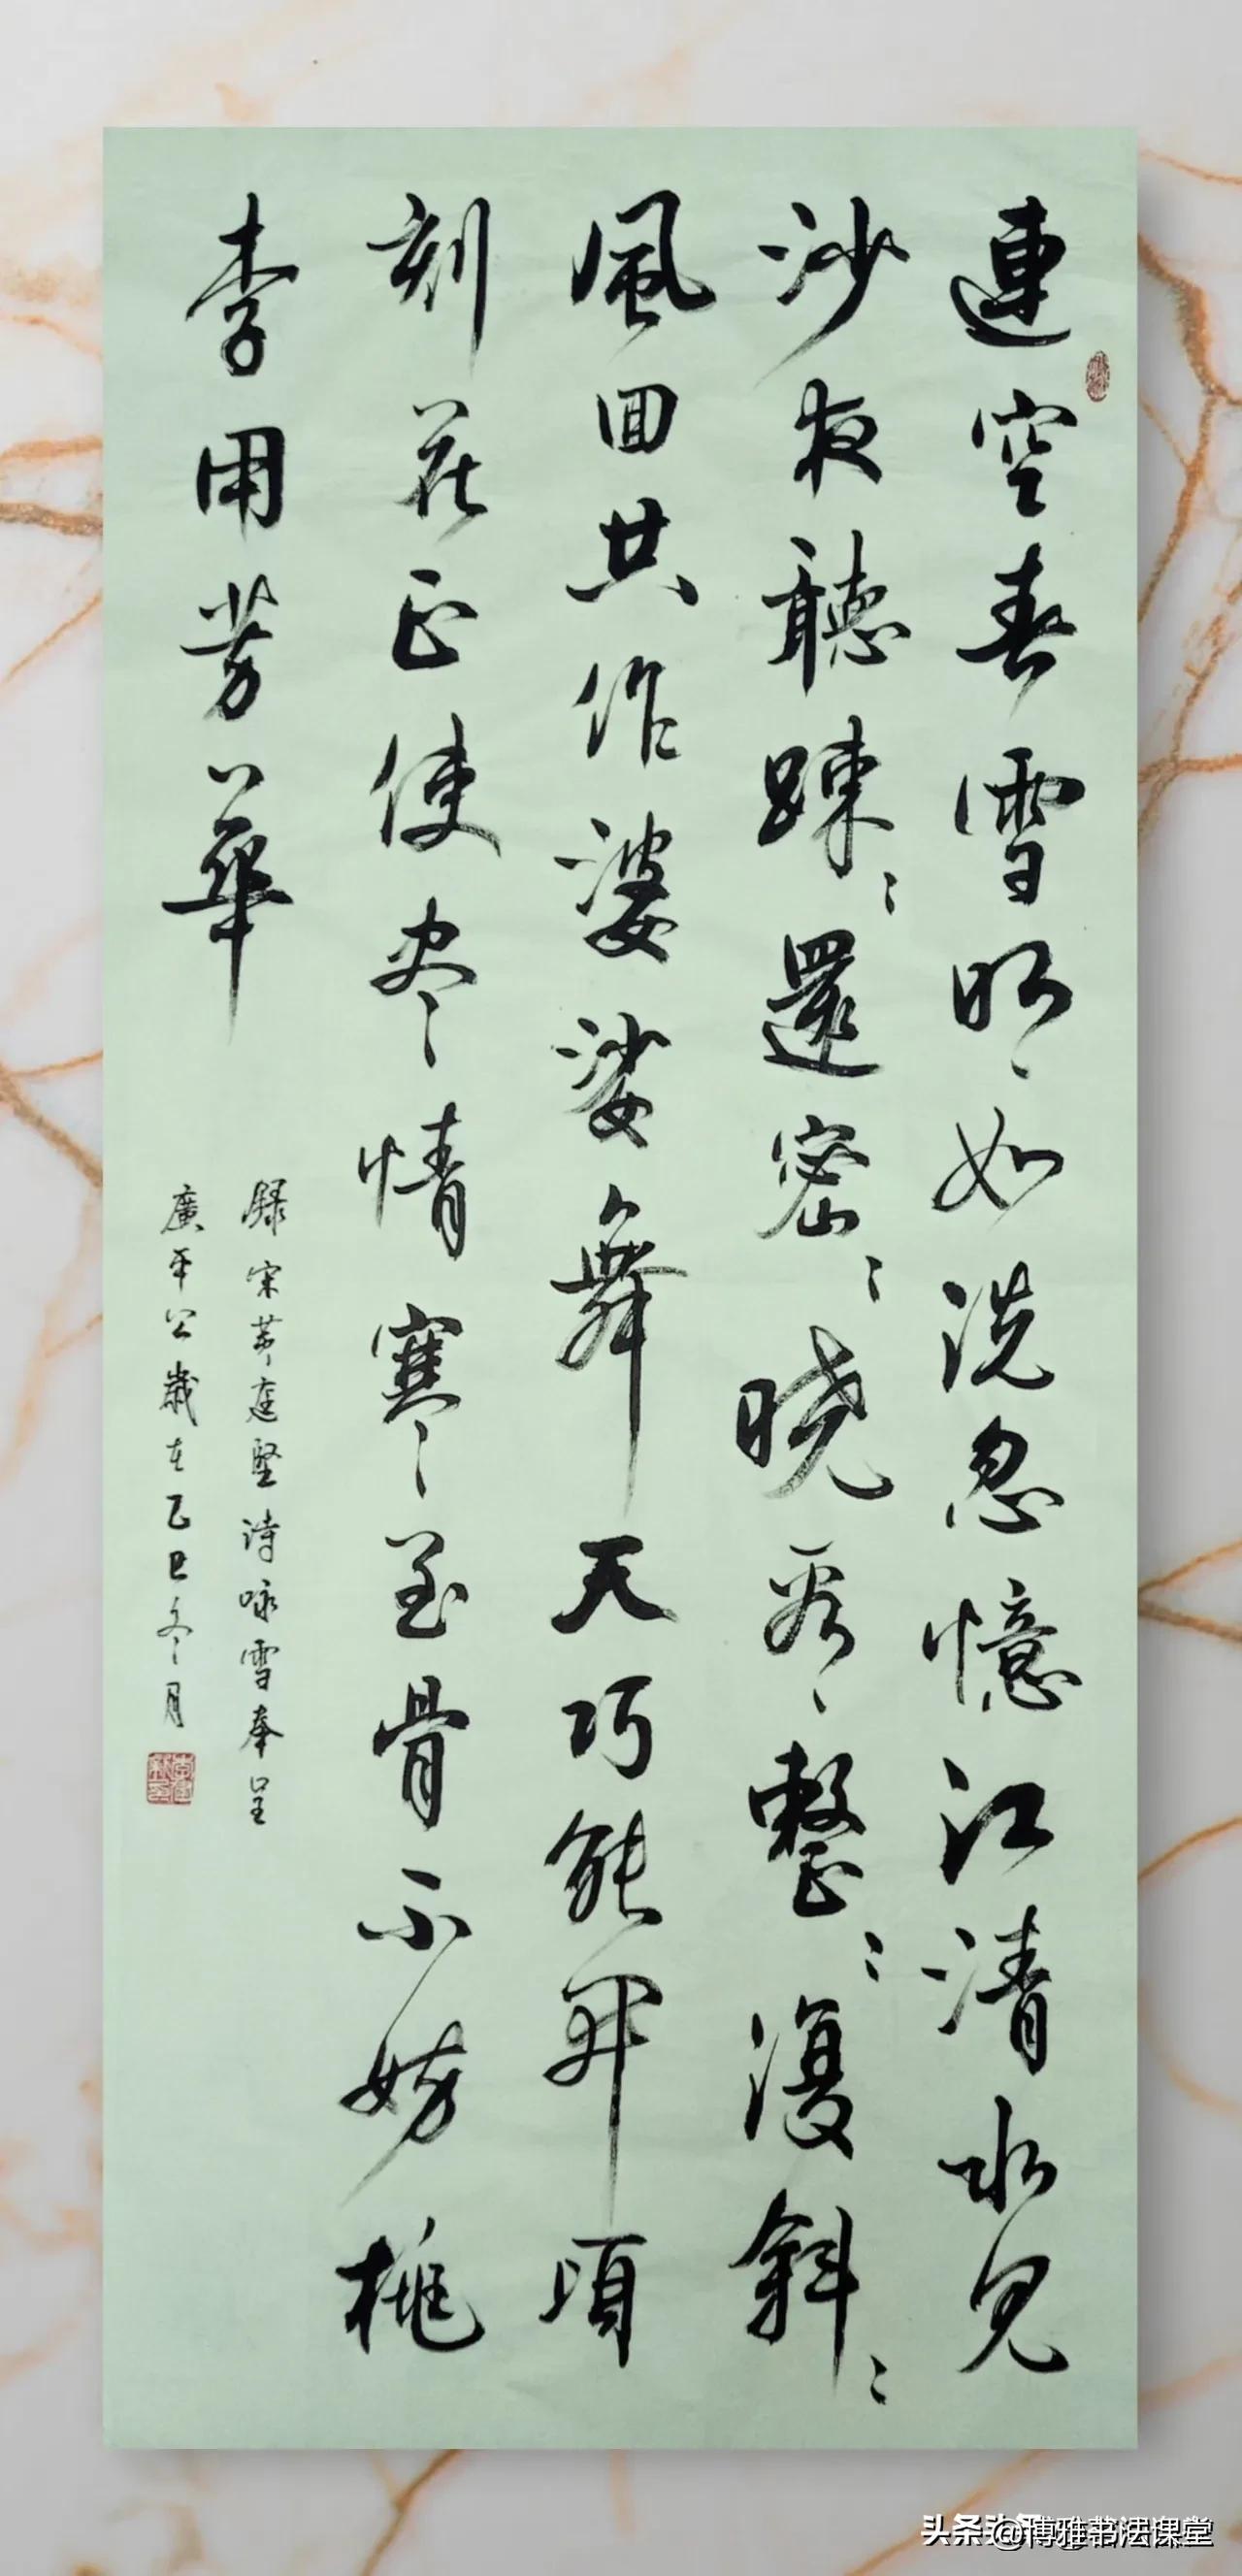 連空春雪明〻如洗忽憶江清水見
沙夜聽踈〻還密〻曉看〻整〻復斜〻
風回共作婆娑舞天巧能開頃
刻花正使尽情寒〻至骨不妨桃
李用芳華
録宋黄庭堅诗咏雪奉呈
廣平公歲在乙巳冬月
头条 @博雅书法课堂